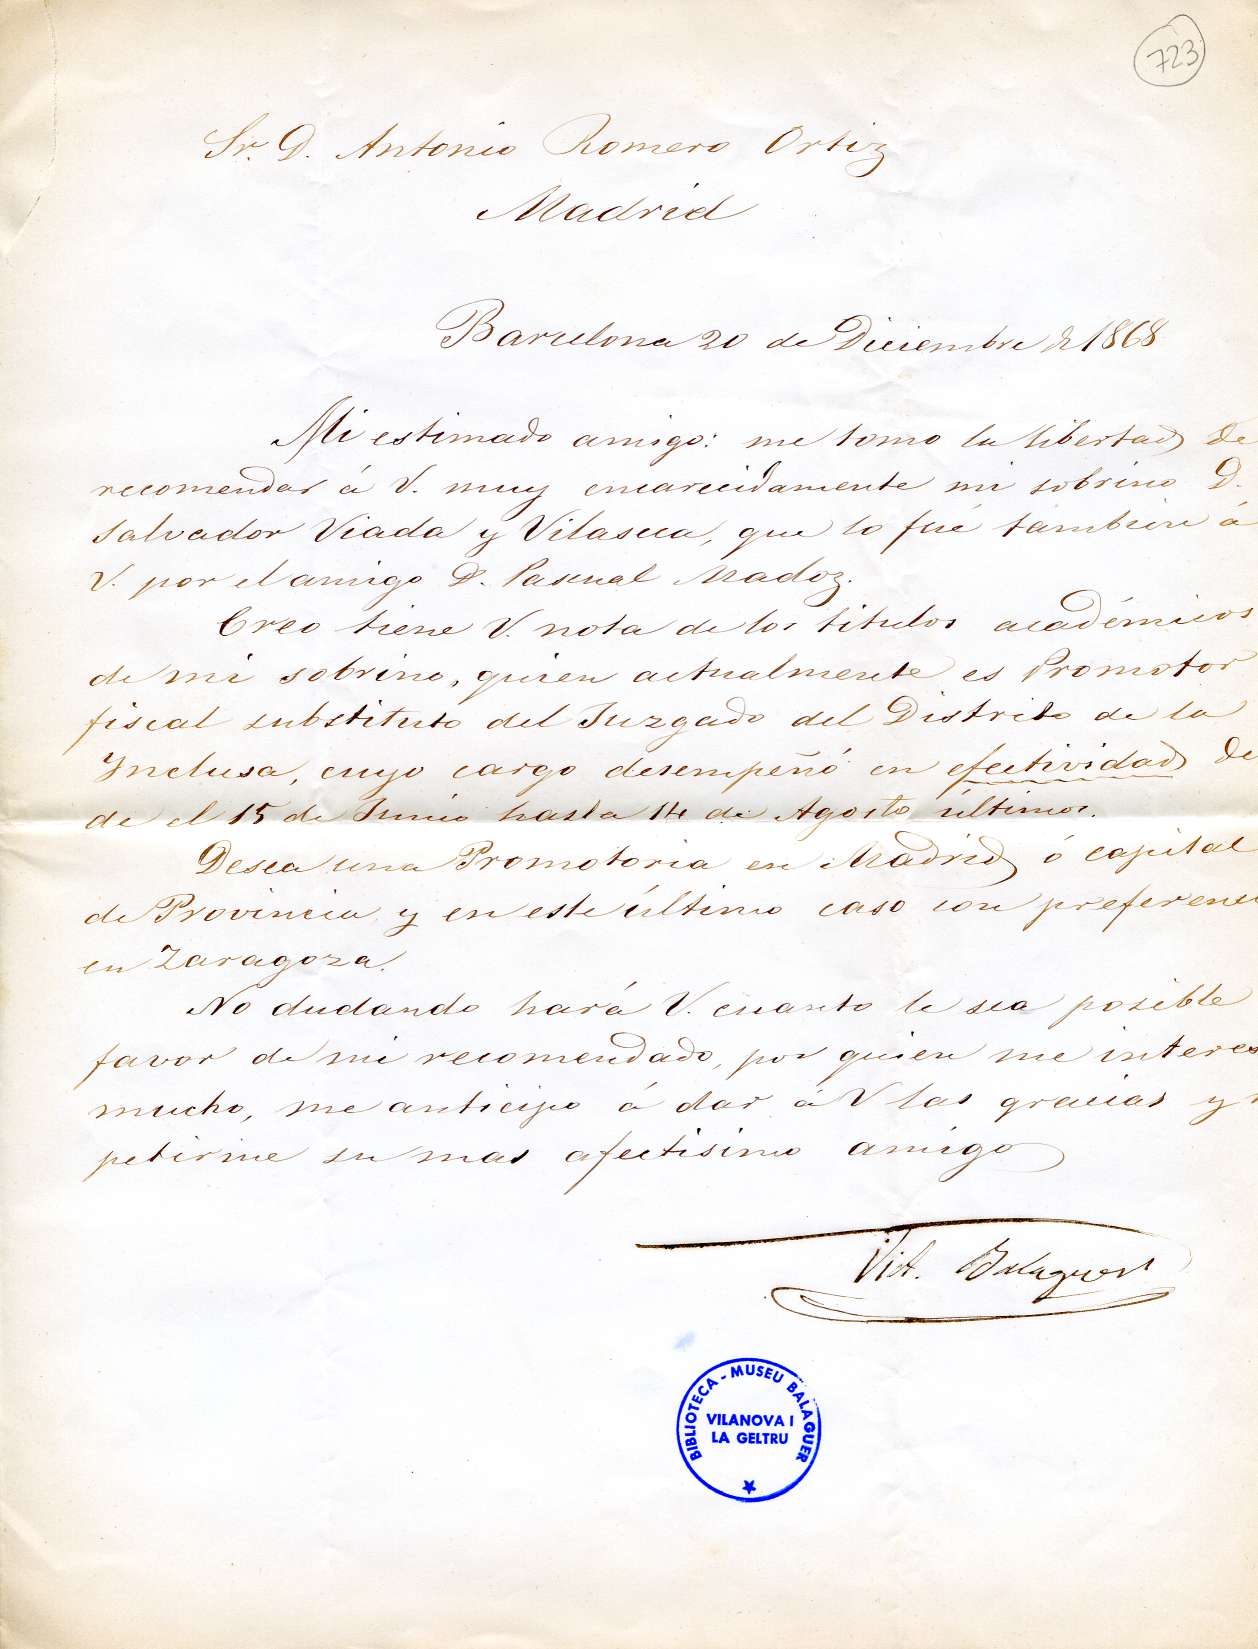 723
Sr. D. Antonio Romero Ortiz
Madrid
Barcelona 20 de Diciembre de 1868
Mi estimado amigo: me tomo la libertad de
recomendar á V. muy encarecidamente mi sobrino D.
Salvador Viada y Vilaseca, que lo fué tambien á
V. por el amigo D. Pascual Madoz.
Creo tiene V. nota de los titulos académicos
de mi sobrino, quien actualmente es Promotor
fiscal substituto del Juzgado del Distrito de la
Inclusa, cuyo cargo desempeñó en efectividad de
de el 15 de Junio hasta 14 de Agosto últimos.
Desea una Promotoria en Madrid ó capital
de Provincia y en este último caso con preferenci
en Zaragoza.
No dudando hará V. cuanto le sea posible
favor de mi recomendado, por quien me interes
mucho, me anticipo á dar á V las gracias y r
petirme su mas afectisimo amigo
Vict. Balaguer
BIBLIOTECA - MUSEU BALAGUER
VILANOVA I
LA GELTRU